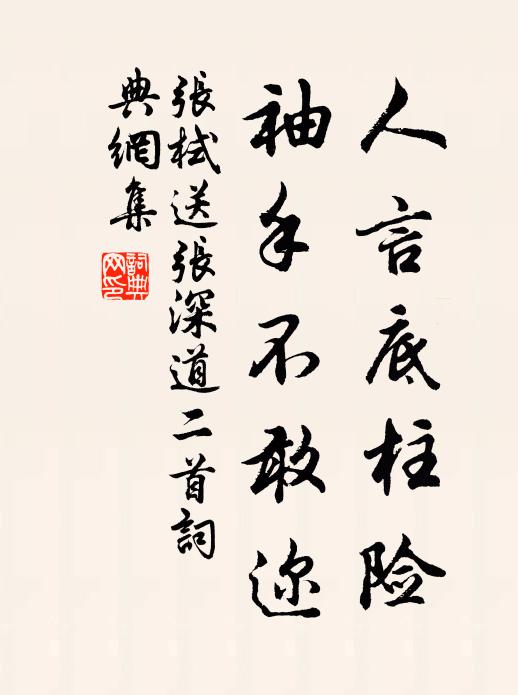 人言底柱险
袖手不敢迩
張栻送張深道二首詞
典網集
詞典網印